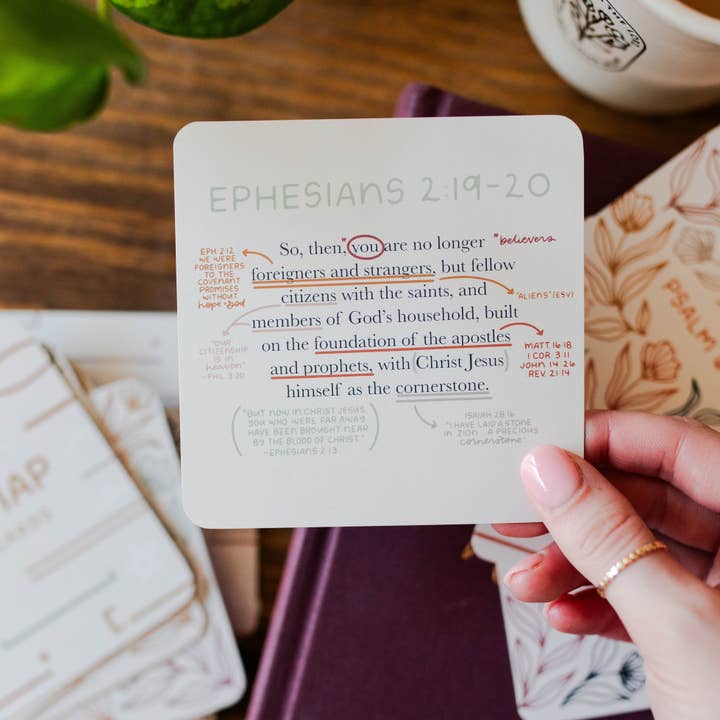 EPHESIANS 2:19-20
So, then, *you are no longer
*believers
foreigners and strangers, but fellow
citizens with the saints, and
members of God's household, built
on the foundation of the apostles
and prophets, with (Christ Jesus)
himself as the cornerstone.
EPH 2:12
WE WERE
FOREIGNERS
TO THE
COVENANT
PROMISES
WITHOUT
hope + God
"ALIENS" (ESV)
"OUR
CITIZENSHIP
IS IN
HEAVEN"
- PHIL 3:20
MATT. 16:18
1 COR. 3:11
JOHN 14:26
REV. 21:14
("BUT NOW IN CHRIST JESUS,
YOU WHO WERE FAR AWAY
HAVE BEEN BROUGHT NEAR
BY THE BLOOD OF CHRIST"
-EPHESIANS 2:13)
ISAIAH 28:16
"I HAVE LAID A STONE
IN ZION ...A PRECIOUS
cornerstone"
MAP
CARDS
PSALM